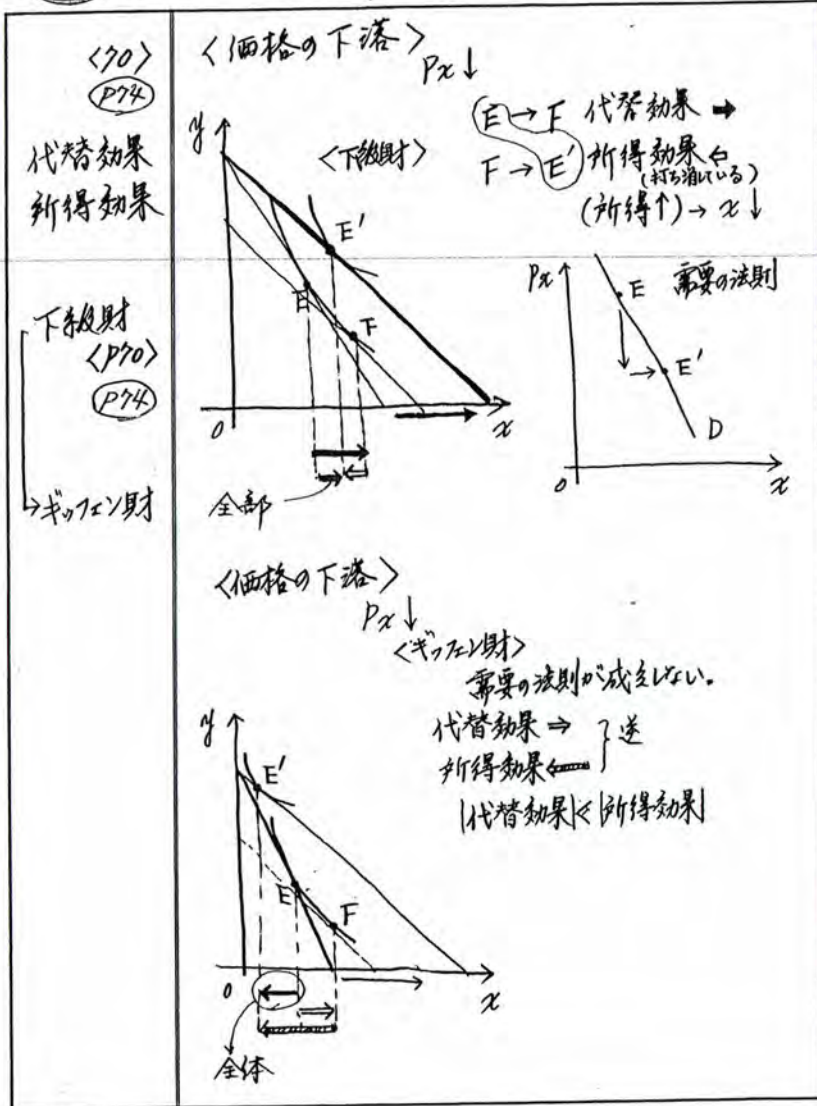 <70>
P74
代替効果
所得効果
下級財
<P70>
P74
→ギッフェン財
<価格の下落>
Px↓
E→F 代替効果 ➡
F→E' 所得効果⇐
(打ち消している)
(所得↑)→x↓
y
<下級財>
E'
E
F
0
x
全部
Px
需要の法則
E
E'
D
0
x
<価格の下落>
Px↓
<ギッフェン財>
需要の法則が成立しない。
代替効果⇒
所得効果⇐
}逆
|代替効果|<|所得効果|
y
E'
E
F
0
x
全体